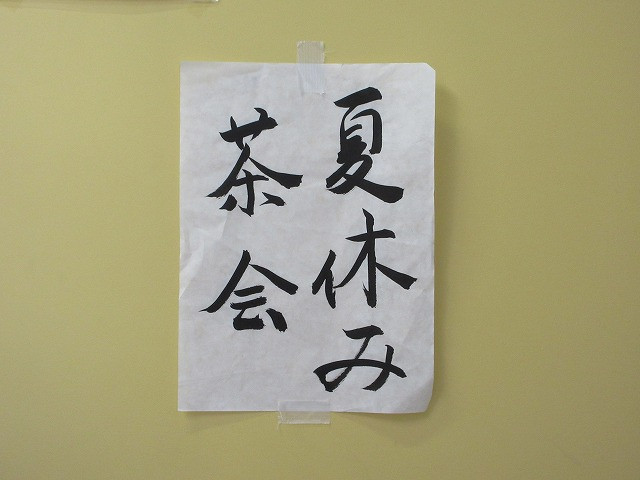 夏休み
茶会